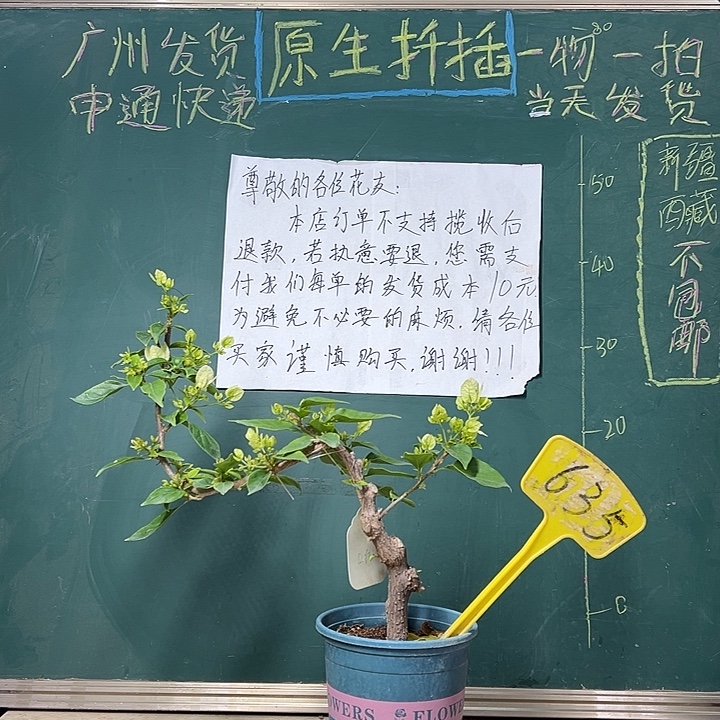 广州发货
原生扦插
一物一拍
申通快递
当天发货
尊敬的各位花友:
本店订单不支持揽收后
退款,若执意要退,您需支
付我们每单的发货成本10元
为避免不必要的麻烦.请各位
买家谨慎购买,谢谢!!!
新疆
西藏
不包邮
80
50
40
30
20
635
FLOWERS